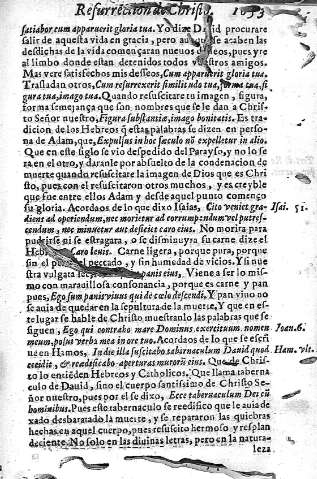 Resurrección de Christo. 1053
satiabor cum apparuerit gloria tua. Yo dize D id procurare
salir de aquesta vida en gracia, pero aunque se acaben las
desdichas de la vida començaran nueuos deseos, pues yre
al limbo donde estan detenidos todos vuestros amigos.
Mas vere satisfechos mis deseos, Cum apparuerit gloria tua.
Trasladan otros, Cum resurrexerit similitudo tua, forma tua, fi
gura tua, imago tua. Quando resuscitare tu imagen, figura,
forma semejança que son nombres que se le dan a Chris-
to Señor nuestro, Figura substantiæ, imago bonitatis. Es tra-
dicion de los Hebreos q̃ estas palabras se dizen en perso-
na de Adam, que, Expulsus in hoc sæculo nō expelletur in alio.
Que en este siglo se vio despedido del Parayso, y no lo se
ra en el otro, y durante por absuelto de la condenacion de
muerte quando resuscitare la imagen de Dios que es Chri
sto, pues con el resuscitaron otros muchos, y es creyble
que fue entre ellos Adam y desde aquel punto començo
su gloria. Acordaos de lo que dixo Isaias, Cito veniet gra-
diens ad aperiendum, nec morietur ad corrumpendum vel putres-
cendum, nec minuetur aut deficiet caro eius. No morira para
pudrirse ni se estragara, o se disminuyra su carne dize el
Hebr Caro leuis. Carne ligera, porque pura, porque
sin el pecado, y sin humedad de vicios. Y si nue
stra vulgata lee panis eius, Viene a ser lo mis-
mo con marauillosa consonancia, porque es carne y pan
pues, Ego sum panis viuus qui de cælo descendi. Y pan viuo no
se auia de quedar en la sepultura de la muerte, Y que en es-
te lugar se hable de Christo muestranlo las palabras que se
siguen, Ego qui contrabo mare Dominus exercituum nomen
meum, posui verba mea in ore tuo. Acordaos de lo que se escri
ue en Hamos, In die illa suscitabo tabernaculum Dauid quod
cecidit, & reædificabo aperturas murorū eius. Que de Chris-
to lo entienden Hebreos y Catholicos. Que llama taberna
culo de Dauid, sino el cuerpo santissimo de Christo Se-
ñor nuestro, pues por el se dixo, Ecce tabernaculum Dei cū
hominibus. Pues este tabernaculo se reedifico que le auia de
xado desbaratado la muerte, y se repararon las quiebras
hechas en aquel cuerpo, pues resuscito hermoso y resplan
deciente. No solo en las diuinas letras, pero en la natura-
leza
Isai. 51.
Joan. 6.
Ham. vlt.